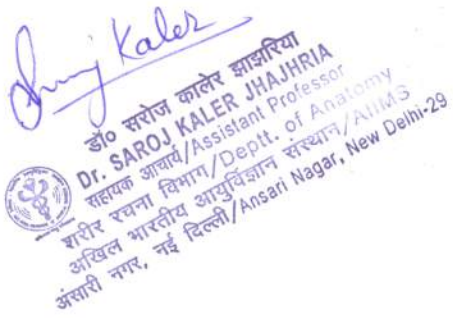 Saroj Kaler
डॉ० सरोज कालेर झाझरिया
Dr. SAROJ KALER JHAJHRIA
सहायक आचार्य/Assistant Professor
शरीर रचना विभाग/Deptt. of Anatomy
अखिल भारतीय आयुर्विज्ञान संस्थान/AIIMS
अंसारी नगर, नई दिल्ली/Ansari Nagar, New Delhi-29